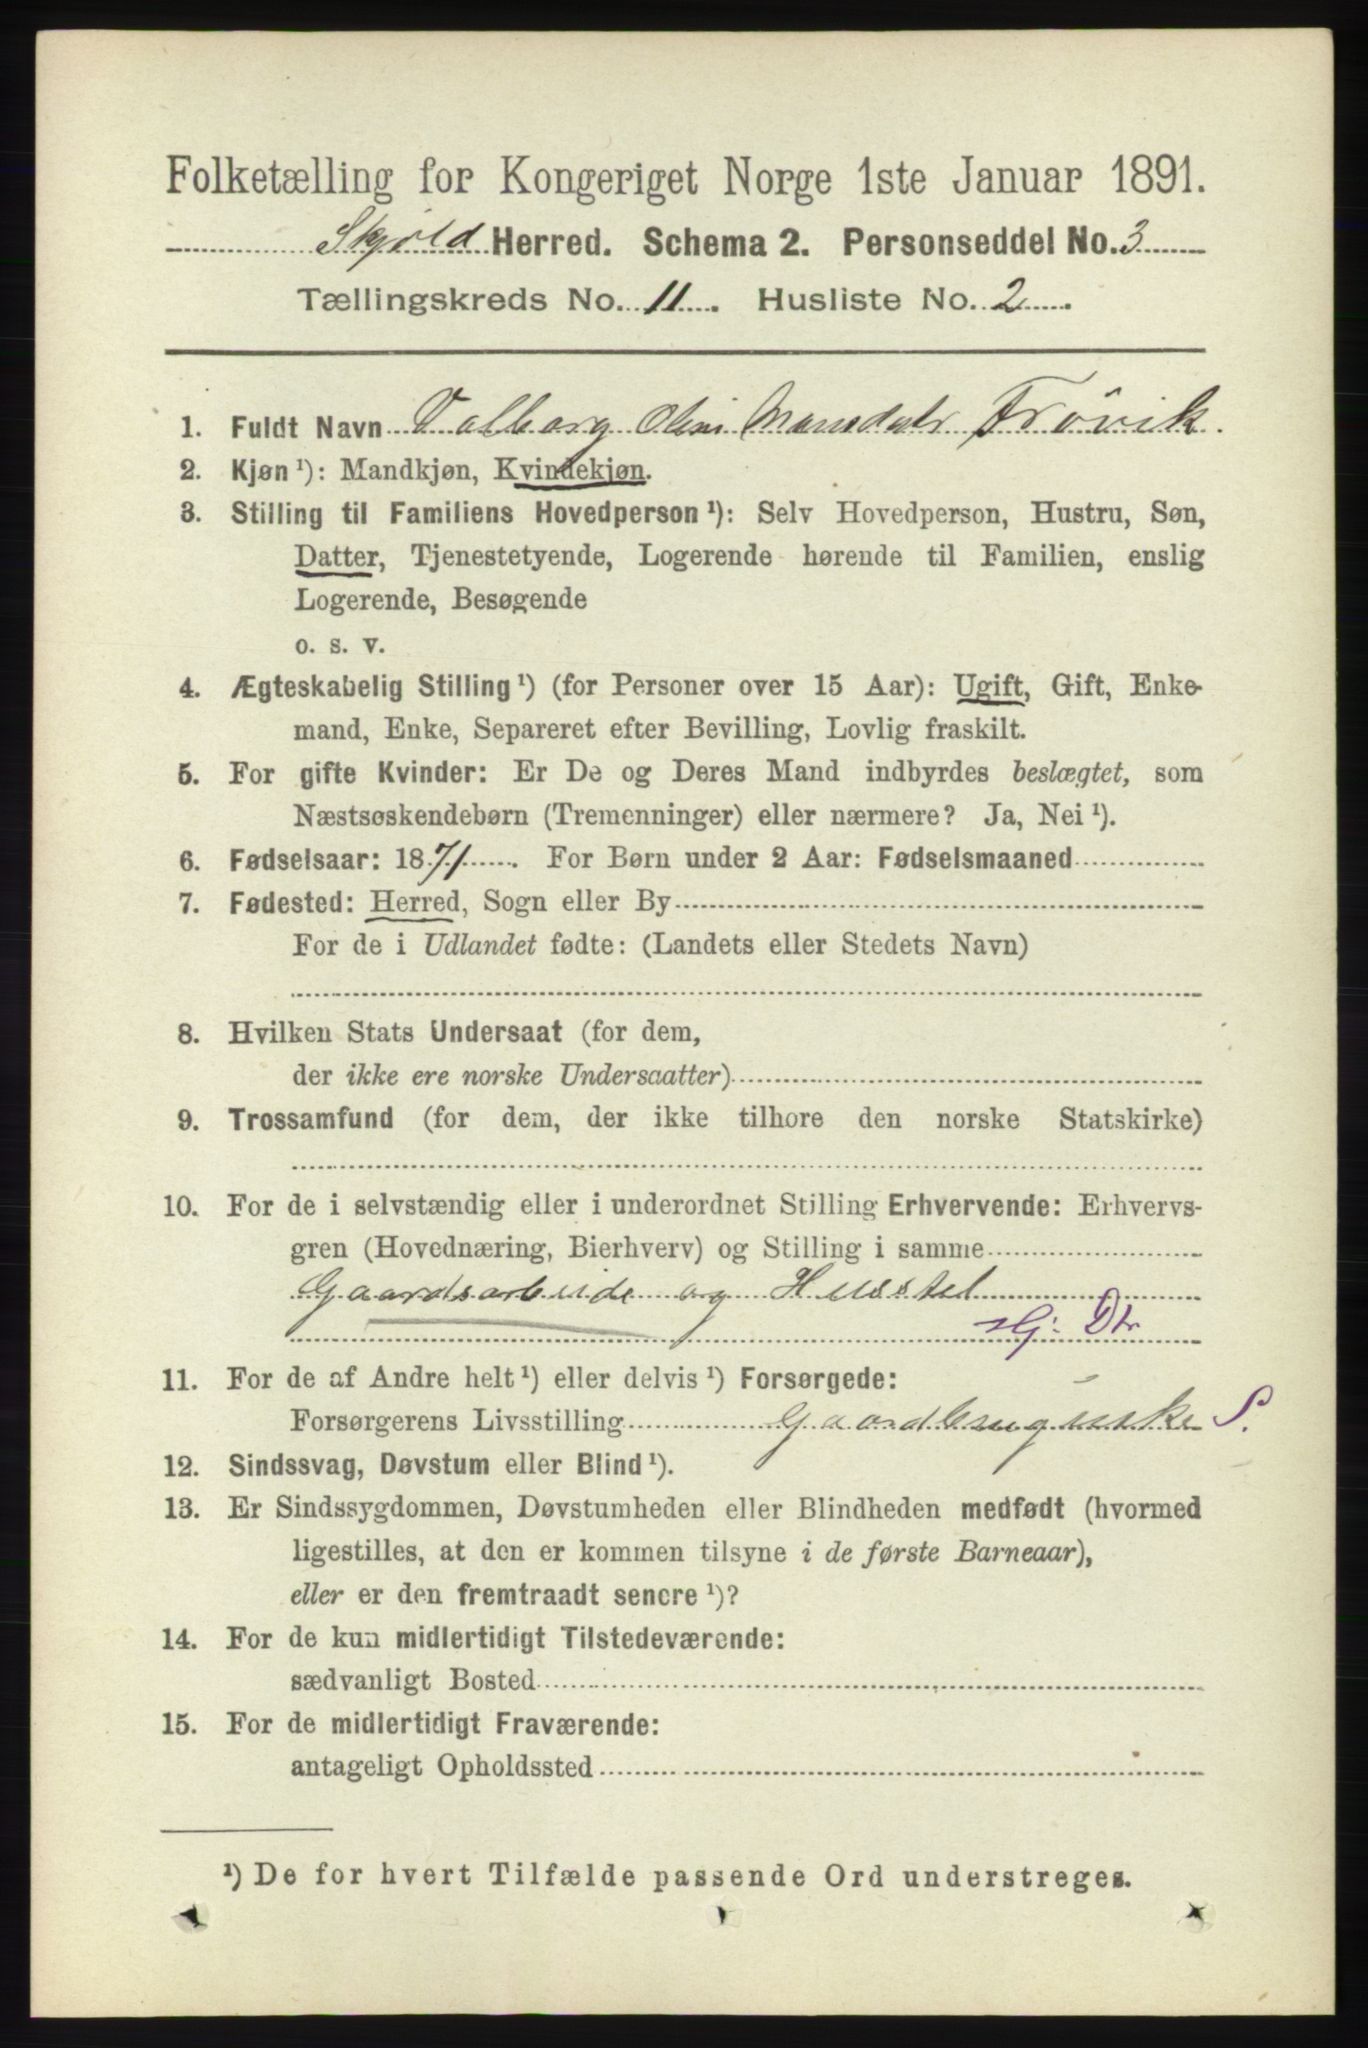 Folketælling for Kongeriget Norge 1ste Januar 1891.
Skjold Herred. Schema 2. Personseddel No. 3
Tællingskreds No. 11. Husliste No. 2.
1. Fuldt Navn Valborg Olini Monsdatr Frövik.
2. Kjøn ¹): Mandkjøn, Kvindekjøn.
3. Stilling til Familiens Hovedperson ¹): Selv Hovedperson, Hustru, Søn,
Datter, Tjenestetyende, Logerende hørende til Familien, enslig
Logerende, Besøgende
o. s. v.
4. Ægteskabelig Stilling ¹) (for Personer over 15 Aar): Ugift, Gift, Enke-
mand, Enke, Separeret efter Bevilling, Lovlig fraskilt.
5. For gifte Kvinder: Er De og Deres Mand indbyrdes beslægtet, som
Næstsøskendebørn (Tremenninger) eller nærmere? Ja, Nei ¹).
6. Fødselsaar: 1871. For Børn under 2 Aar: Fødselsmaaned
7. Fødested: Herred, Sogn eller By
For de i Udlandet fødte: (Landets eller Stedets Navn)
8. Hvilken Stats Undersaat (for dem,
der ikke ere norske Undersaatter)
9. Trossamfund (for dem, der ikke tilhore den norske Statskirke)
10. For de i selvstændig eller i underordnet Stilling Erhvervende: Erhvervs-
gren (Hovednæring, Bierhverv) og Stilling i samme
Gaardsarbeide og Husstel
slj: Dtr
11. For de af Andre helt ¹) eller delvis ¹) Forsørgede:
Forsørgerens Livsstilling Gaardbrugerske S.
12. Sindssvag, Døvstum eller Blind ¹).
13. Er Sindssygdommen, Døvstumheden eller Blindheden medfødt (hvormed
ligestilles, at den er kommen tilsyne i de første Barneaar),
eller er den fremtraadt senere ¹)?
14. For de kun midlertidigt Tilstedeværende:
sædvanligt Bosted
15. For de midlertidigt Fraværende:
antageligt Opholdssted
¹) De for hvert Tilfælde passende Ord understreges.